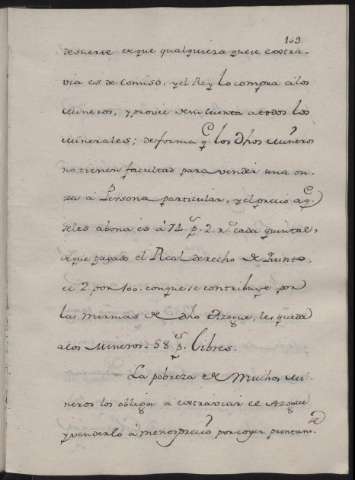 103
de suerte deque qualquiera que se extra-
via es de comiso, y el Rey lo compra alos
Mineros, y provee de su cuenta atodos los
Minerales; de forma q.e los Dhos Mineros
no tienen facultad para vender una on-
za a Persona particular, y el precio aq.e
seles abona es à 74 p.s 2 r.s cada quintal,
deque pagado el Real derecho de Quinto
el 2 por 100. conque se contribuye por
las mermas de dho Azogue, les queda
alos Mineros 58 p.s libres.
La pobreza de Muchos Mi-
neros los obliga a extraviar el Azogue
y venderlo à menos precio por coger prontam.te